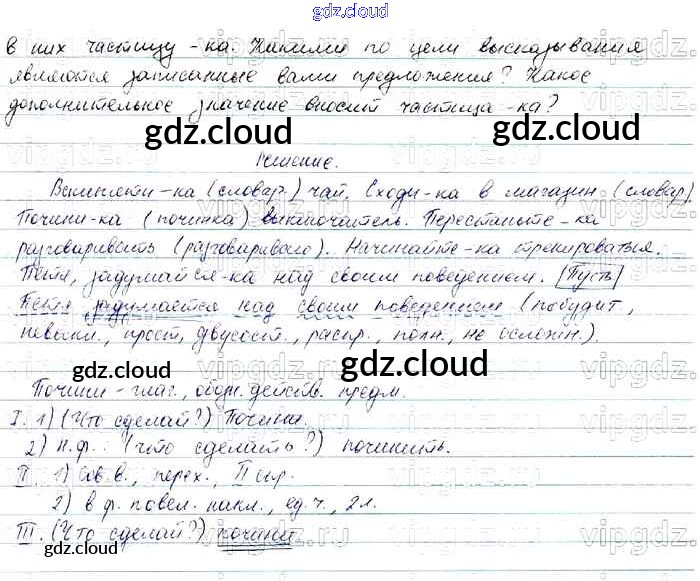 gdz.cloud
в них частицу -ка. Какими по цели высказывания
являются записанные вами предложения? Какое
дополнительное значение вносит частица -ка?
gdz.cloud gdz.cloud
Решение.
Вскипяти-ка (словар.) чай. Сходи-ка в магазин (словар).
Почини-ка (починка) выключатель. Перестаньте-ка
разговаривать (разговаривала). Начинайте-ка тренироваться.
Петя, задумайся-ка над своим поведением. Пусть
Петя задумается над своим поведением (побудит,
невоскл., прост, двусост., распр., полн., не осложн.).
gdz.cloud gdz.cloud
Почини - глаг., обозн. действ. предм.
I. 1) (Что сделай?) Почини.
2) н.ф.: (что сделать?) починить.
II. 1) сов.в., перех., II спр.
2) в ф. повел. накл., ед.ч., 2л.
III. (Что сделай?) почини
gdz.cloud gdz.cloud